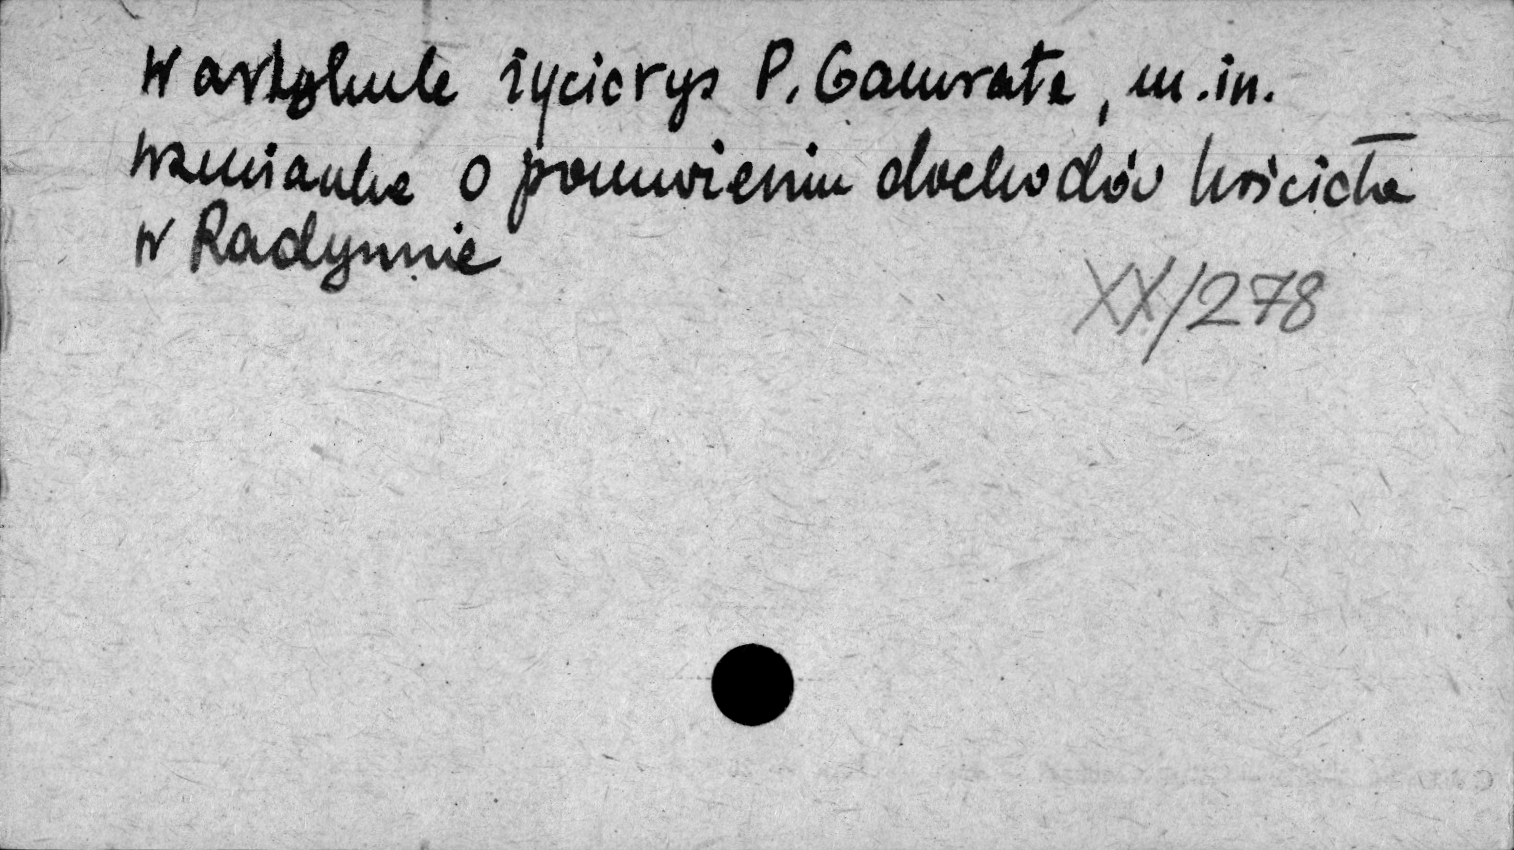 W artykule życiorys P. Gamrata, m.in.
wzmianka o pomnożeniu dochodów kościoła
w Radymnie
XX/278